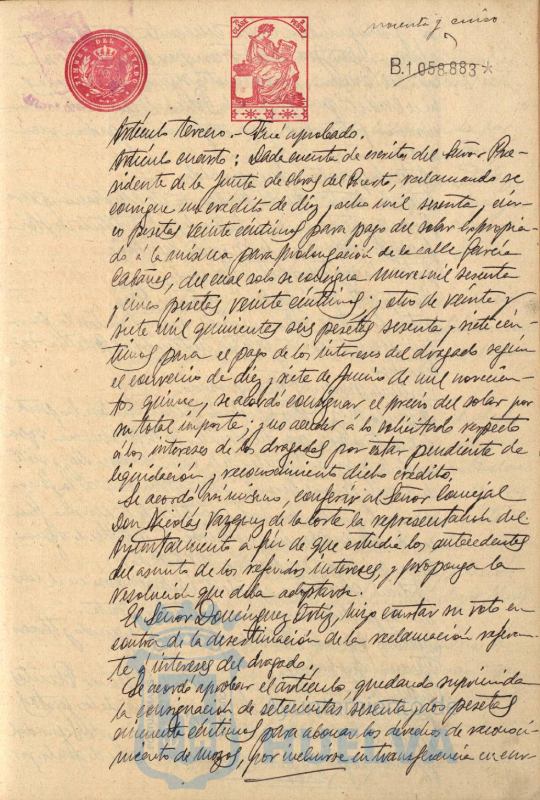 noventa y cinco
TIMBRE DEL ESTADO
CLASE
B.1.058.883*
Artículo tercero.- Fué aprobado.
Artículo cuarto: Dada cuenta de escritos del Señor Pre-
sidente de la Junta de Obras del Puerto, reclamando se
consigne un crédito de diez y ocho mil sesenta y cin-
co pesetas veinte céntimos para pago del solar expropia-
do á la misma para prolongación de la calle García
Cabañas, del cual solo se consigna nueve mil sesenta
y cinco pesetas veinte céntimos; y otro de veinte y
siete mil quinientas seis pesetas sesenta y siete cén-
timos para el pago de los intereses del dragado según
el convenio de diez y siete de Junio de mil novecien-
tos quince, se acordó consignar el precio del solar por
su total importe; y no acceder á lo solicitado respecto
á los intereses de los dragados por estar pendiente de
liquidación y reconocimiento dicho crédito.
Se acordó asi mismo, conferir al Señor Concejal
Don Nicolás Vazquez de la Corte la representación del
Ayuntamiento á fin de que estudie los antecedentes
del asunto de los referidos intereses, y proponga la
resolución que deba adoptarse.
El Señor Domínguez Ortiz, hizo constar su voto en
contra de la desestimación de la reclamación referen-
te á intereses del dragado.
Se acordó aprobar el artículo, quedando suprimida
la consignación de setecientas sesenta y dos pesetas
céntimos para abonar los derechos de reconoci-
miento de mozos, por incluirse en transferencia en cur-
HUELVA